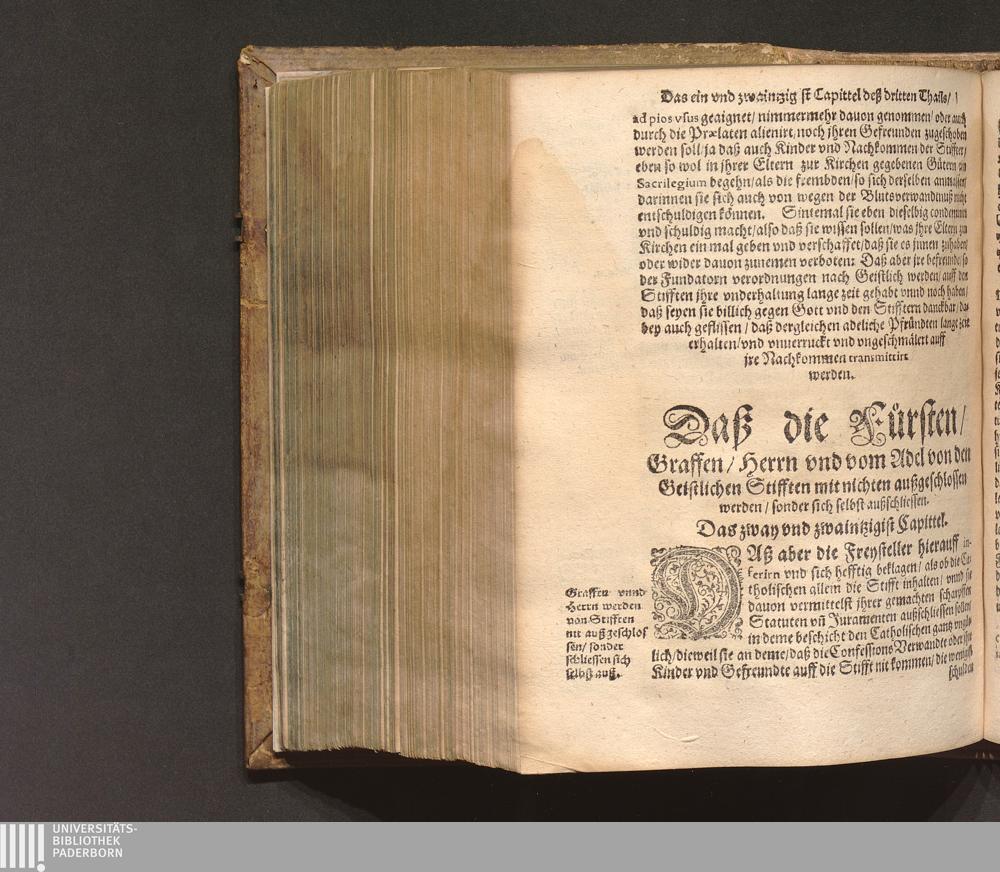 Das ein vnd zwaintzig st Capittel deß dritten Thails/
ad pios vsus geaignet/ nimmermehr dauon genommen/ oder auch
durch die Prælaten alienirt/ noch jhren Gefreunden zugeschoben
werden soll/ ja daß auch Kinder vnd Nachkommen der Stiffter/
eben so wol in jhrer Eltern zur Kirchen gegebenen Gütern ein
Sacrilegium begehn/ als die frembden/ so sich derselben anmassen/
darinnen sie sich auch von wegen der Blutsverwandtnuß nicht
entschuldigen können. Sintemal sie eben dieselbig condemnirt
vnd schuldig macht/ also daß sie wissen sollen/ was jhre Eltern zur
Kirchen ein mal geben vnd verschaffet/ daß sie es jnnen zuhaben/
oder wider dauon zunemen verboten: Daß aber jre befreunde/ so
der Fundatorn verordnungen nach Geistlich werden/ auff den
Stifften jhre vnderhaltung lange zeit gehabt vnnd noch haben/
daß seyen sie billich gegen Gott vnd den Stifftern danckbar/ da-
bey auch geflissen/ daß dergleichen adeliche Pfründten lange zeit
erhalten/ vnd vnuerruckt vnd vngeschmälert auff
jre Nachkommen transmittirt
werden.
Daß die Fürsten/
Graffen/ Herrn vnd vom Adel von den
Geistlichen Stifften mit nichten außgeschlossen
werden/ sonder sich selbst außschliessen.
Das zway vnd zwaintzigist Capittel.
DAß aber die Freysteller hierauff in-
ferirn vnd sich hefftig beklagen/ als ob die Ca-
tholischen allein die Stifft inhalten/ vnnd sie
dauon vermittelst jhrer gemachten scharpffen
Statuten vñ Juramenten außschliessen sollen/
in deme beschicht den Catholischen gantz vngüt-
lich/ dieweil sie an deme/ daß die Confessions Verwandte oder jhre
Kinder vnd Gefreundte auff die Stifft nit kommen/ die wenigist
schulden
Graffen vnnd
Herrn werden
von Stifften
nit außgeschlos
sen/ sonder
schliessen sich
selbst auß.
UNIVERSITÄTS-
BIBLIOTHEK
PADERBORN